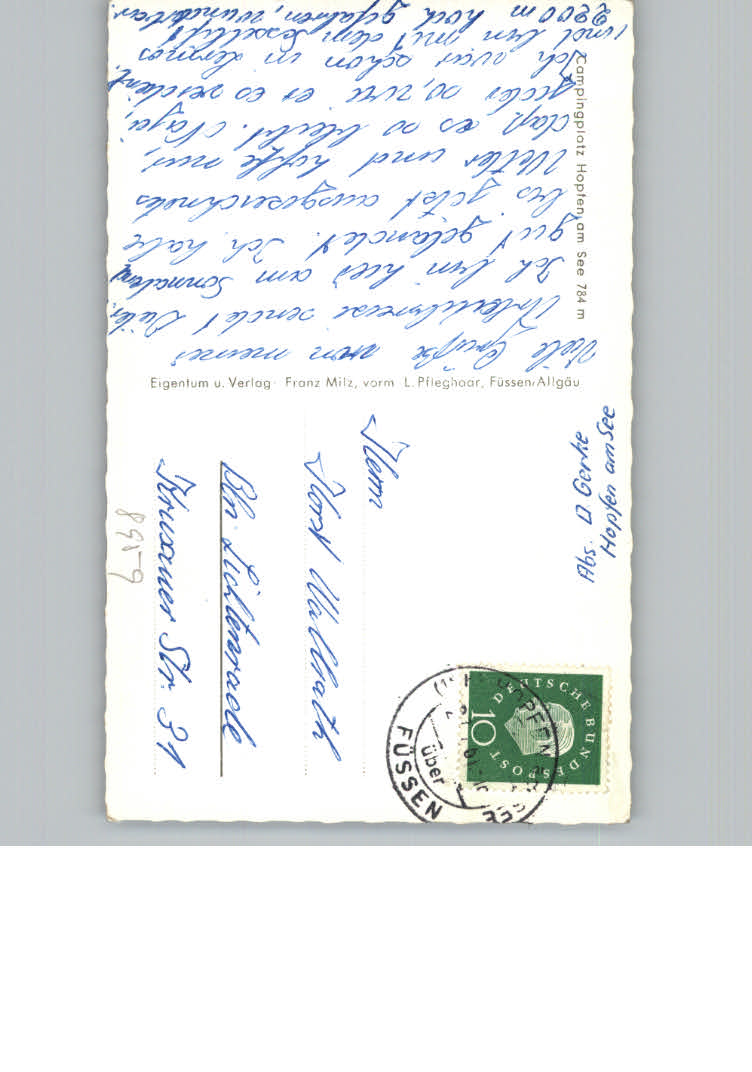 Campingplatz Hopfen am See 784 m
Viele Grüße von meiner
Urlaubsreise sendet Dieter.
Ich bin hier am Sonnabend
gut gelandet. Ich habe
bis jetzt ausgezeichnetes
Wetter und hoffe nur,
daß es so bleibt. Naja,
jeder so, wie er es verdient.
Ich war schon in Lermos
und bin mit dem Sessellift
2200 m hoch gefahren, wunderbar.
Eigentum u. Verlag: Franz Milz, vorm. L. Pfleghaar, Füssen/Allgäu
Abs. D. Gerke
Hopfen am See
Herrn
Horst Wallrath
Bln. Lichtenrade
Str. 31
8959
DEUTSCHE BUNDESPOST
10
HOPFEN AM SEE
über
FÜSSEN